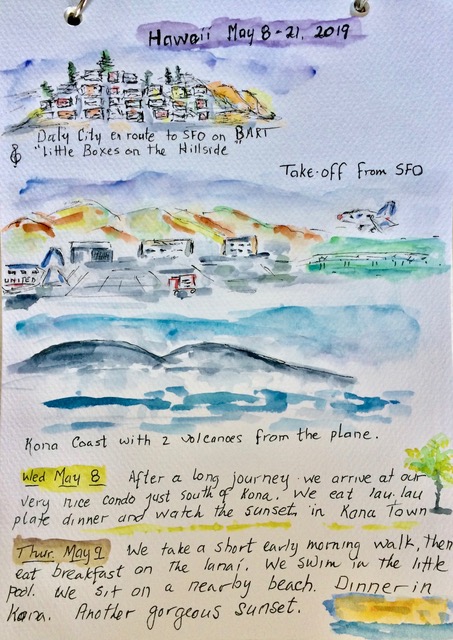 Hawaii May 8-21, 2019
Daly City en route to SFO on BART
"Little Boxes on the Hillside"
Take-off from SFO
UNITED
Kona Coast with 2 volcanoes from the plane.
Wed May 8 After a long journey we arrive at our
very nice condo just south of Kona. We eat lau lau
plate dinner and watch the sunset in Kona Town
Thur. May 9 We take a short early morning walk, then
eat breakfast on the lanai. We swim in the little
pool. We sit on a nearby beach. Dinner in
Kona. Another gorgeous sunset.